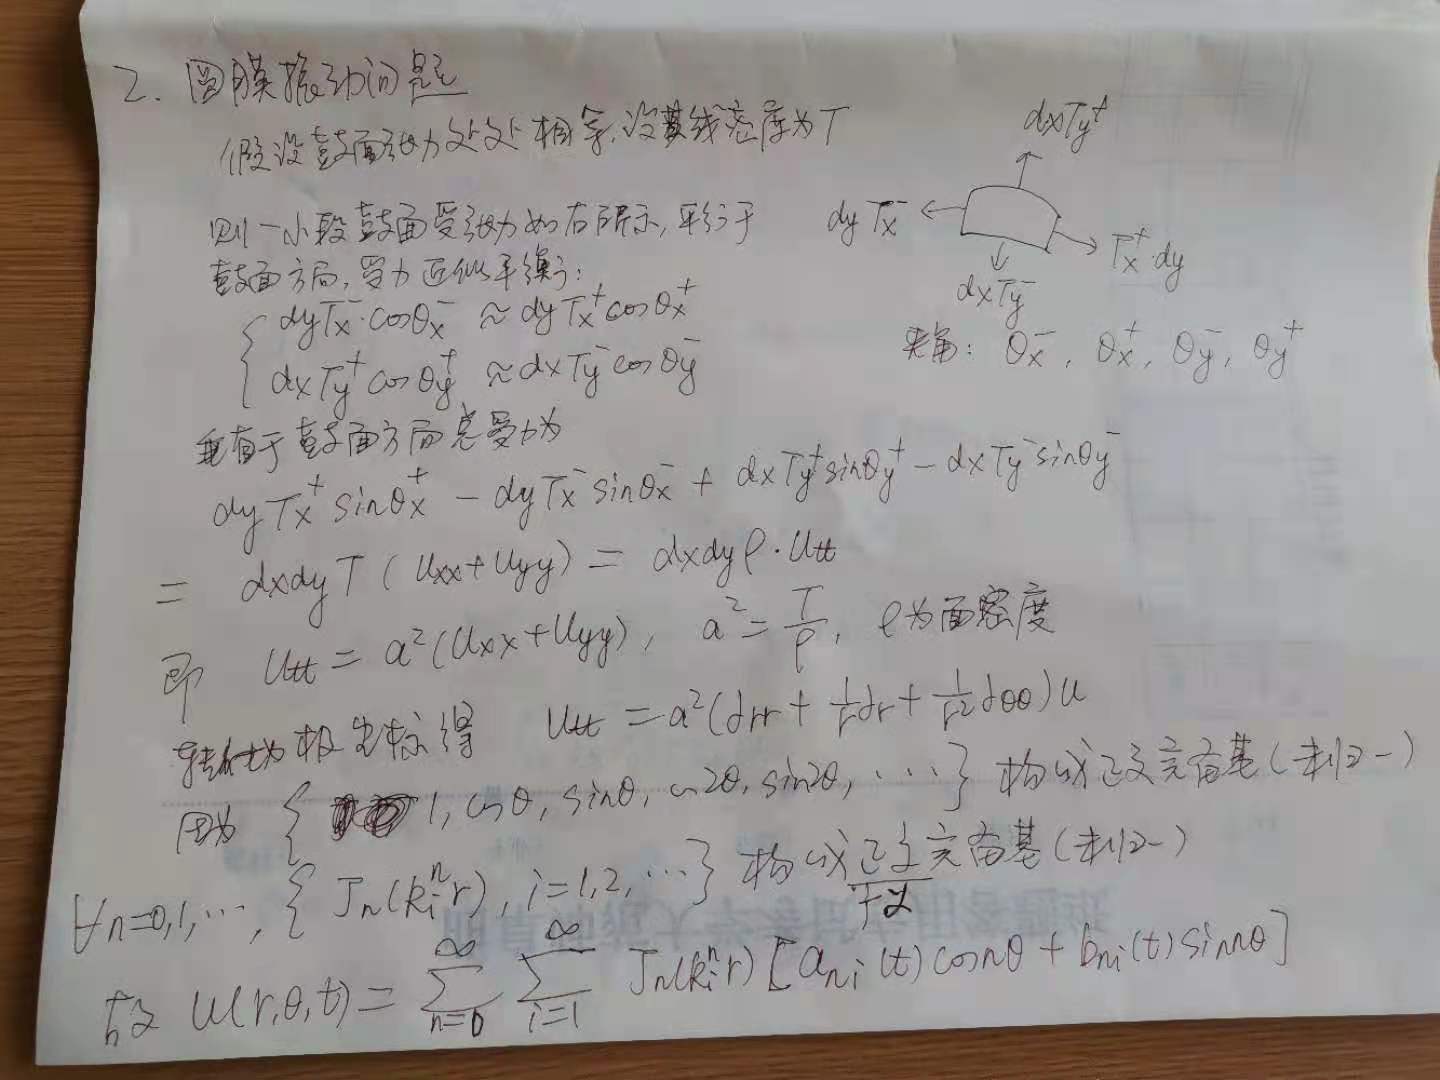 2. 圆膜振动问题
假设鼓面张力处处相等,设其线密度为T
dxTy⁺
则一小段鼓面受张力如右所示,平行于
dyTx⁻
Tx⁺·dy
鼓面方向,受力近似平衡:
dxTy⁻
{ dyTx⁻·cosθx⁻ ≈ dyTx⁺cosθx⁺
dxTy⁺cosθy⁺ ≈ dxTy⁻cosθy⁻
夹角: θx⁻, θx⁺, θy⁻, θy⁺
垂直于鼓面方向总受力为
dyTx⁺sinθx⁺ - dyTx⁻sinθx⁻ + dxTy⁺sinθy⁺ - dxTy⁻sinθy⁻
= dxdyT(Uxx+Uyy) = dxdyρ·Utt
即 Utt = a²(Uxx+Uyy), a² = T/ρ, ρ为面密度
转化为极坐标得 Utt = a²(∂rr + 1/r ∂r + 1/r² ∂θθ)u
因为 { 1, cosθ, sinθ, cos2θ, sin2θ, ⋯} 构成正交完备基(未归一)
∀n=0,1,⋯, { Jn(kᵢⁿr), i=1,2,⋯} 构成正交完备基(未归一)
故 u(r,θ,t) = ∑_{n=0}^{∞} ∑_{i=1}^{∞} Jn(kᵢⁿr)[aₙᵢ(t)cosnθ + bₙᵢ(t)sinnθ]